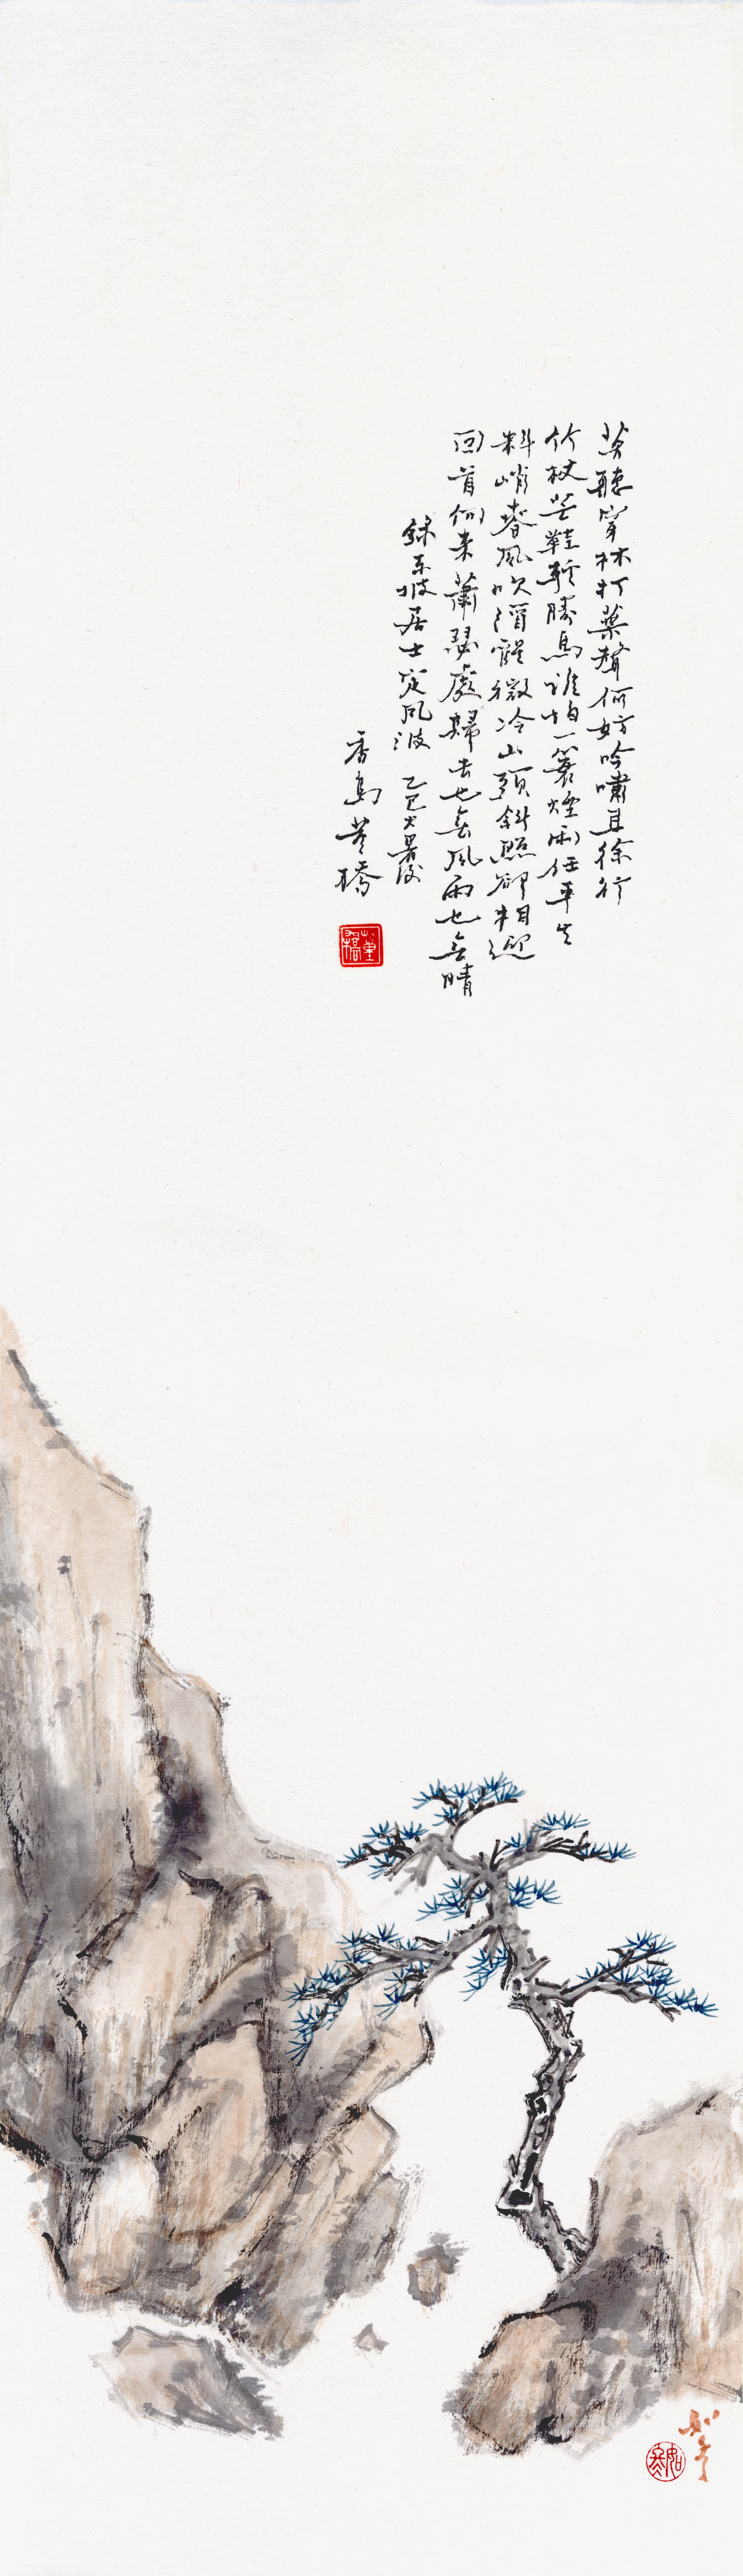 莫聽穿林打葉聲何妨吟嘯且徐行
竹杖芒鞋輕勝馬誰怕一蓑煙雨任平生
料峭春風吹酒醒微冷山頭斜照卻相迎
回首向来蕭瑟處歸去也無風雨也無晴
錄東坡居士定風波 乙巳大暑後
香島董橋
董橋